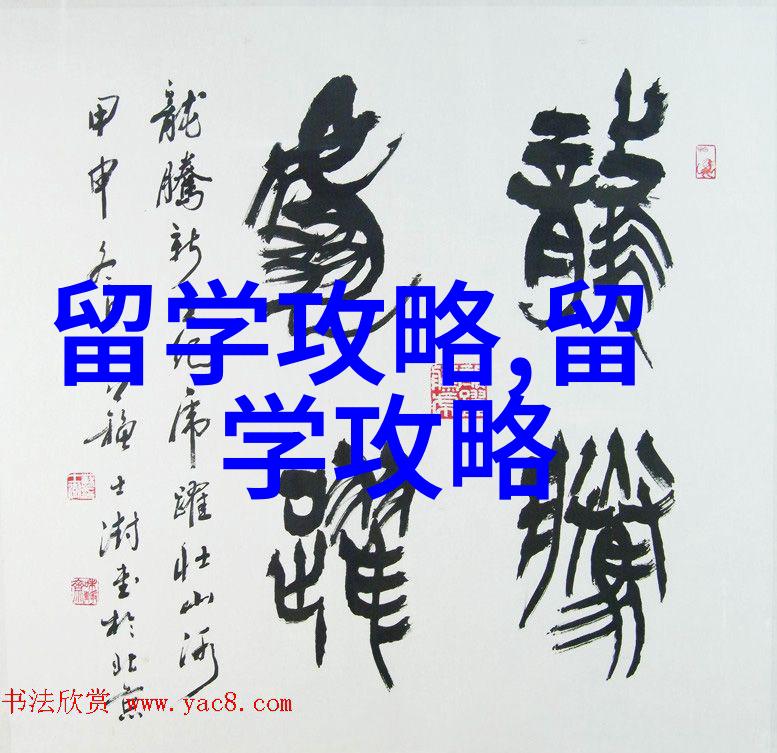 留学攻略,留
学攻略
龍騰
虎躍
龍騰新世纪虎躍壮山河
甲申冬 士澍书於北京
书法欣赏 www.yac8.com